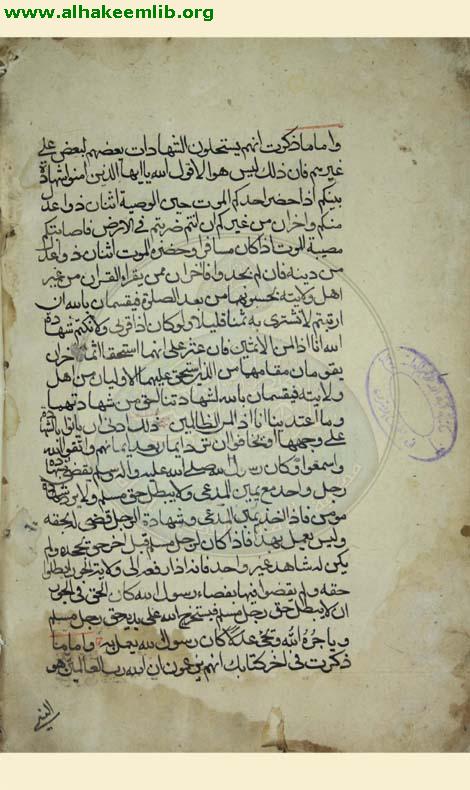 www.alhakeemlib.org
واما ما ذكرت انهم يستحلون الشهادات بعضهم لبعض على
غيرهم فان ذلك ليس هو الا قول الله يا ايها الذين امنوا شهادة
بينكم اذا حضر احدكم الموت حين الوصية اثنان ذوا عدل
منكم واخران من غيركم ان انتم ضربتم في الارض فاصابتكم
مصيبة الموت اذا كان مسافرا وحضره الموت اثنان ذوا عدل
من دينه فان لم يجدوا فاخران ممن يقرا القران من غير
اهل ولايته تحبسونهما من بعد الصلوة فيقسمان بالله ان
ارتبتم لا نشترى به ثمنا قليلا ولو كان ذا قربى ولا نكتم شهادة
الله انا اذا لمن الاثمين فان عثر على انهما استحقا اثما فاخران
يقومان مقامهما من الذين استحق عليهما الاوليان من اهل
ولايته فيقسمان بالله لشهادتنا احق من شهادتهما
وما اعتدينا انا اذا لمن الظالمين ذلك ادنى ان ياتوا بالشهادة
على وجهها او يخافوا ان ترد ايمان بعد ايمانهم واتقوا الله
واسمعوا وكان رسول الله صلى الله عليه واله يقضى بشهادة
رجل واحد مع يمين المدعى ولا يبطل حق مسلم ولا يرد شهادة
مومن فاذا اخذ يمين المدعى وشهادة الرجل قضى له بحقه
وليس يعمل بهذا فاذا كان لرجل مسلم قبل اخر حق يجحده ولم
يكن له شاهد غير واحد فانه اذا رفعه الى ولاة الجور ابطلوا
حقه ولم يقضوا فيها بقضاء رسول الله كان الحق في الجور
ان لا يبطل حق رجل مسلم فيستخرج الله على يديه حق رجل مسلم
وياجره الله كان رسول الله يعمل به واما ما
ذكرت في اخر كتابك انهم يزعمون ان الله رب العالمين هو